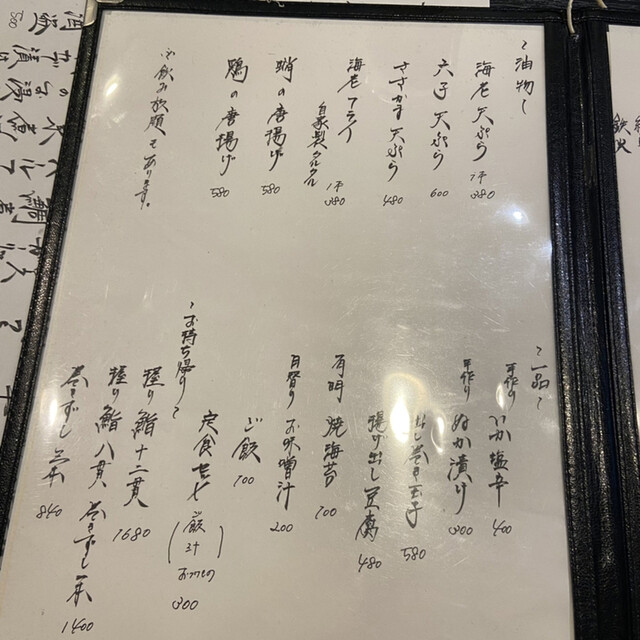 ～油物～
海老天ぷら 1本 380
穴子天ぷら 600
ささかま天ぷら 480
海老フライ 1本 380
自家製タルタル
蛸の唐揚げ 580
鶏の唐揚げ 580
飲み放題もあります。
～一品～
手作り いか塩辛 400
手作り ぬか漬け 300
出し巻き玉子 580
揚げ出し豆腐 480
有明 焼海苔 100
日替り お味噌汁 200
ご飯 100
定食セット（ご飯 汁 おつけもの） 300
～お持ち帰り～
握り鮨十二貫 1680
握り鮨八貫 巻きずし一本 1400
巻きずし一本 840
鉄火